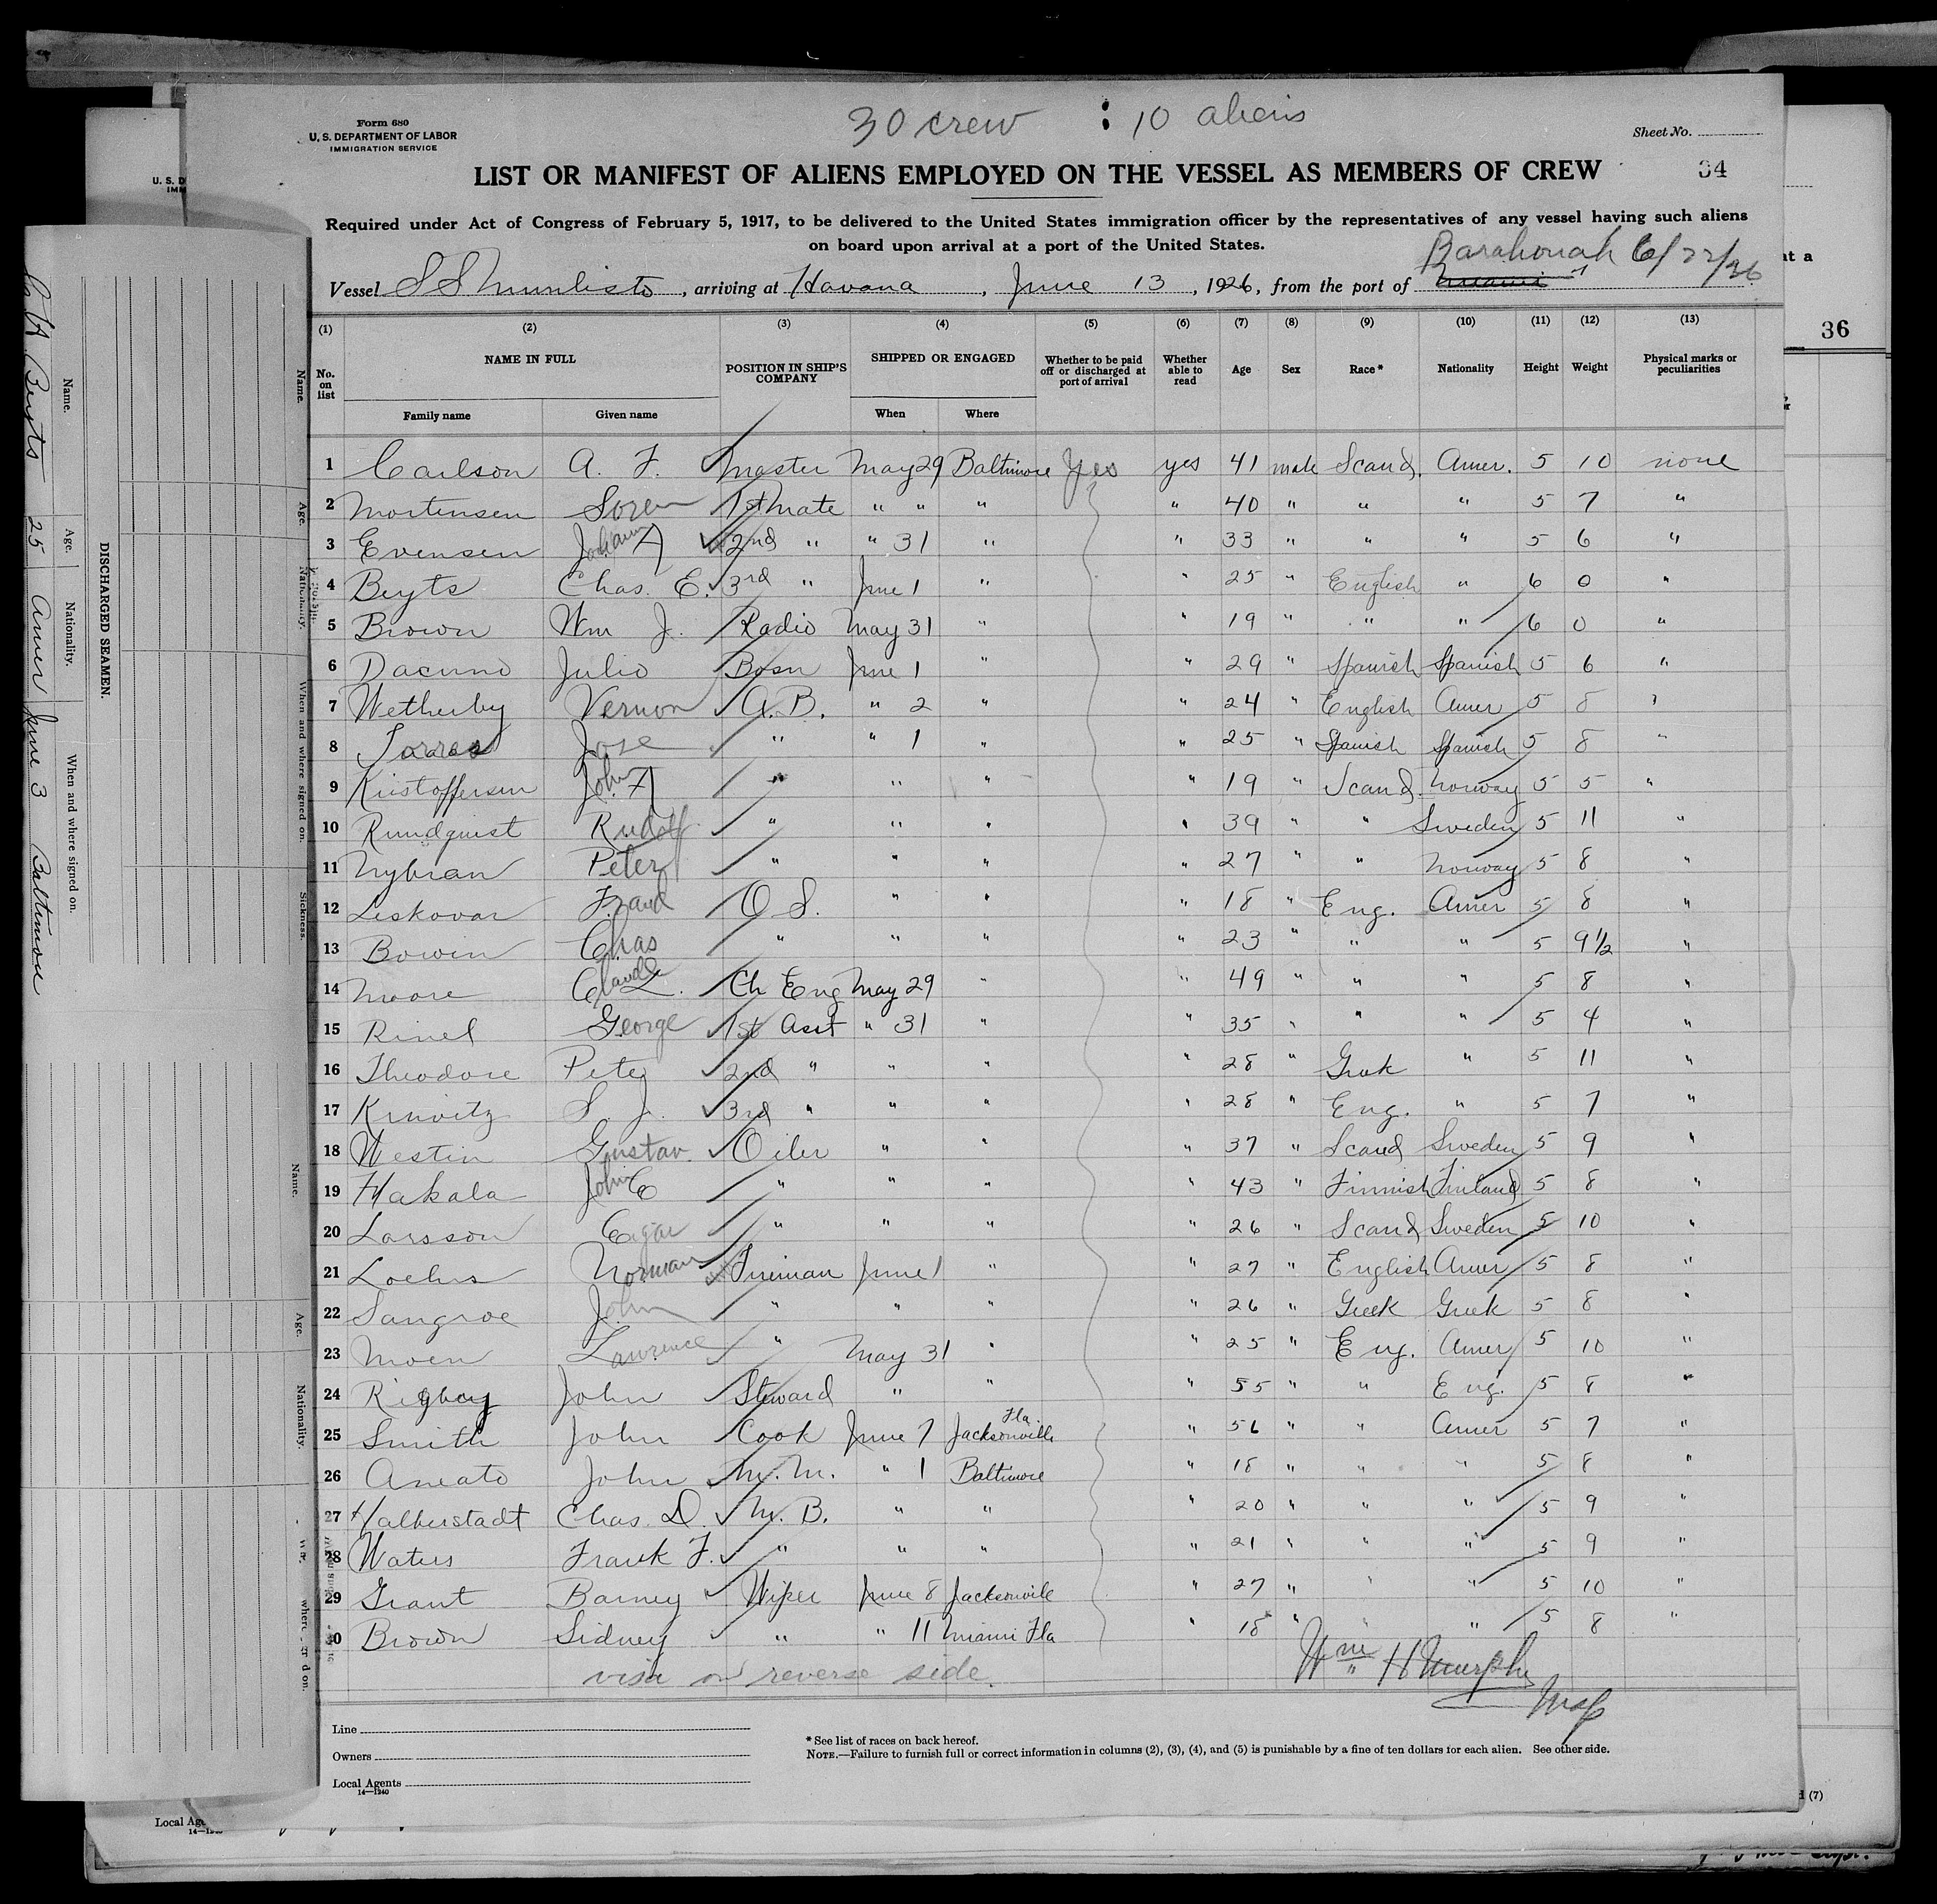 30 crew : 10 aliens
Form 680
U. S. DEPARTMENT OF LABOR
IMMIGRATION SERVICE
Sheet No.
LIST OR MANIFEST OF ALIENS EMPLOYED ON THE VESSEL AS MEMBERS OF CREW
34
Required under Act of Congress of February 5, 1917, to be delivered to the United States immigration officer by the representatives of any vessel having such aliens
on board upon arrival at a port of the United States.
Barahonah 6/22/26
Vessel SS Munlisto, arriving at Havana, June 13, 1926, from the port of
(1) (2) (3) (4) (5) (6) (7) (8) (9) (10) (11) (12) (13)
No. on list NAME IN FULL POSITION IN SHIP'S COMPANY SHIPPED OR ENGAGED Whether to be paid off or discharged at port of arrival Whether able to read Age Sex Race* Nationality Height Weight Physical marks or peculiarities
Family name Given name When Where
1 Carlson A. F. Master May 29 Baltimore Yes yes 41 male Scand. Amer. 5 10 none
2 Mortensen Soren 1st Mate " " " " 40 " " " 5 7 "
3 Evensen Johann A 2nd " " 31 " " 33 " " " 5 6 "
4 Beyts Chas. E. 3rd " June 1 " " 25 " English " 6 0 "
5 Brown Wm J. Radio May 31 " " 19 " " " 6 0 "
6 Dacuno Julio Bosn June 1 " " 29 " Spanish Spanish 5 6 "
7 Wetherby Vernon A. B. " 2 " " 24 " English Amer 5 8 "
8 Torres Jose " " 1 " " 25 " Spanish Spanish 5 8 "
9 Kristoffersen John A " " " " 19 " Scand. Norway 5 5 "
10 Rundquist Rudolf " " " " 39 " " Sweden 5 11 "
11 Nybran Peter " " " " 27 " " Norway 5 8 "
12 Leskovar O S. " " " 18 " Eng. Amer 5 8 "
13 Bowen Chas " " " " 23 " " " 5 9 1/2 "
14 Moore Claude L. Ch Eng May 29 " " 49 " " " 5 8 "
15 Rinel George 1st Asst " 31 " " 35 " " " 5 4 "
16 Theodore Peter 2nd " " " " 28 " Greek " 5 11 "
17 Krivitz S. J. 3rd " " " " 28 " Eng. " 5 7 "
18 Westin Gustav Oiler " " " 37 " Scand Sweden 5 9 "
19 Hakala John E " " " " 43 " Finnish Finland 5 8 "
20 Larsson " " " " 26 " Scand Sweden 5 10 "
21 Loehrs Norman Fireman June 1 " " 27 " English Amer 5 8 "
22 Sangroe John " " " " 26 " Greek Greek 5 8 "
23 Moen Lawrence " May 31 " " 25 " Eng. Amer 5 10 "
24 Rigbey John Steward " " " 55 " " Eng. 5 8 "
25 Smith John Cook June 7 Jacksonville Fla. " 56 " " Amer 5 7 "
26 Aneato John M. M. " 1 Baltimore " 18 " " " 5 8 "
27 Halberstadt Chas. D. M. B. " " " 20 " " " 5 9 "
28 Waters Frank F. " " " " 21 " " " 5 9 "
29 Grant Barney Wiper June 8 Jacksonville " 27 " " " 5 10 "
30 Brown Sidney " " 11 Miami Fla " 18 " " " 5 8 "
visa on reverse side.
Wm H Murphy
Line
Owners
Local Agents
14—1240
* See list of races on back hereof.
NOTE.—Failure to furnish full or correct information in columns (2), (3), (4), and (5) is punishable by a fine of ten dollars for each alien. See other side.
DISCHARGED SEAMEN.
Name. Age. Nationality. When and where signed on.
Beyts 25 Amer June 3 Baltimore
Name. Age. Nationality. When and where signed on. Sickness.
Name. Age. Nationality.
36
Local Age